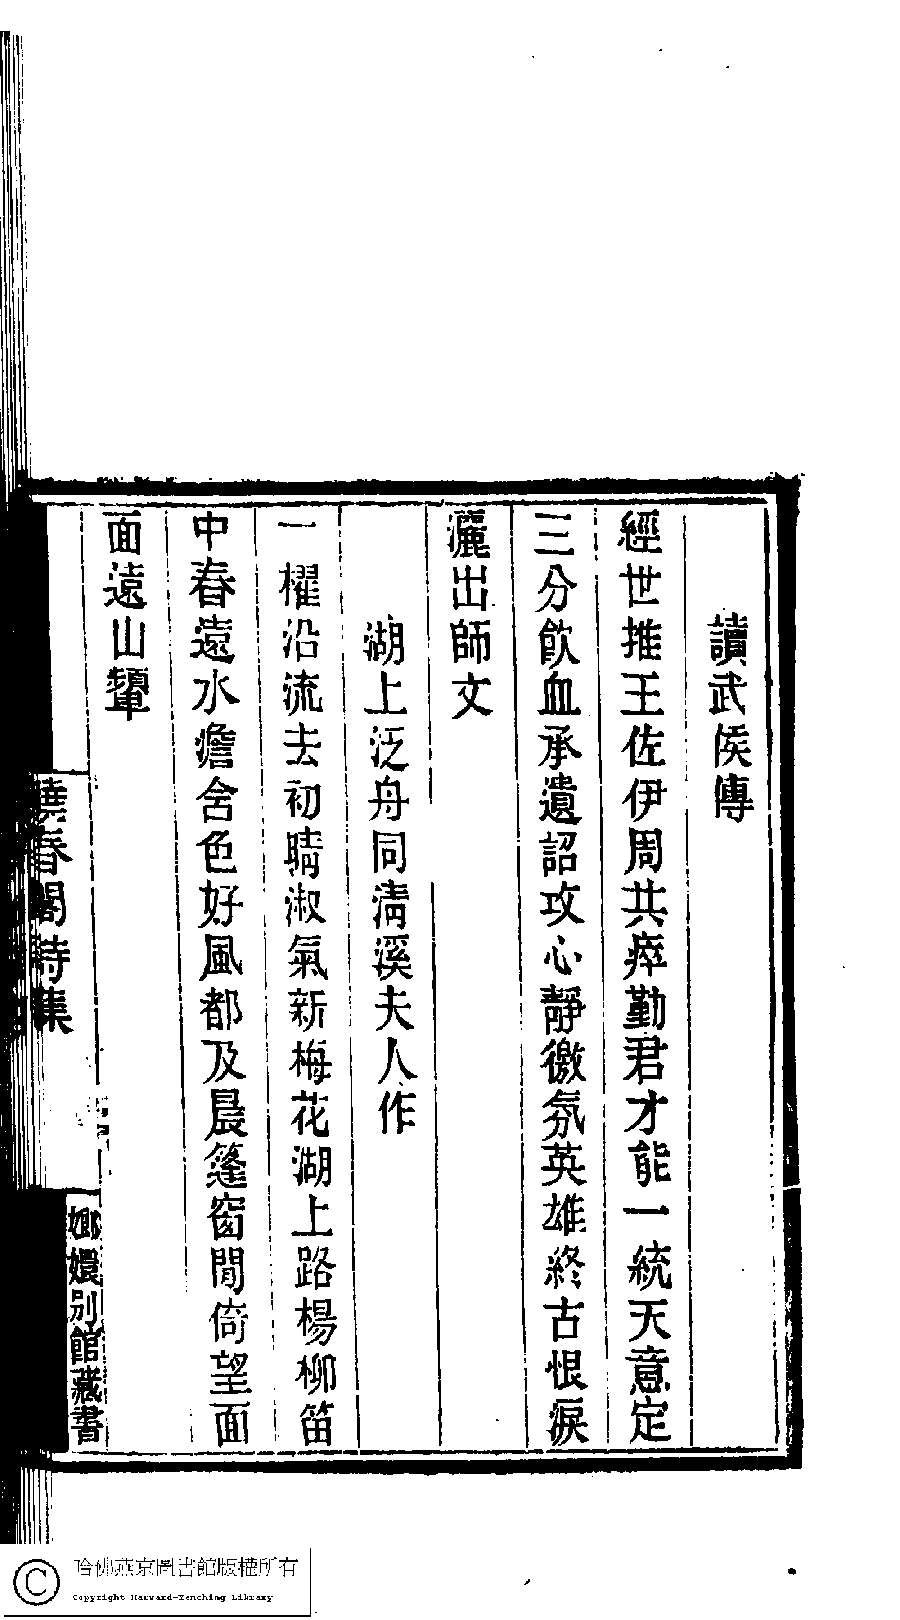 讀武侯傳
經世推王佐伊周共瘁勤君才能一統天意定
三分飲血承遺詔攻心靜徼氛英雄終古恨淚
灑出師文
湖上泛舟同清溪夫人作
一櫂沿流去初晴淑氣新梅花湖上路楊柳笛
中春遠水澹舍色好風都及晨篷窗閒倚望面
面遠山顰
曉春閣詩集
嫏嬛別館藏書
哈佛燕京圖書館版權所有
Copyright Harvard-Yenching Library